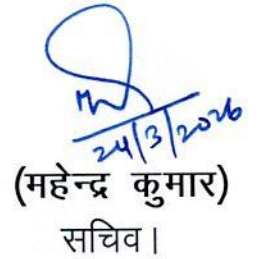 24/3/2026
(महेन्द्र कुमार)
सचिव।